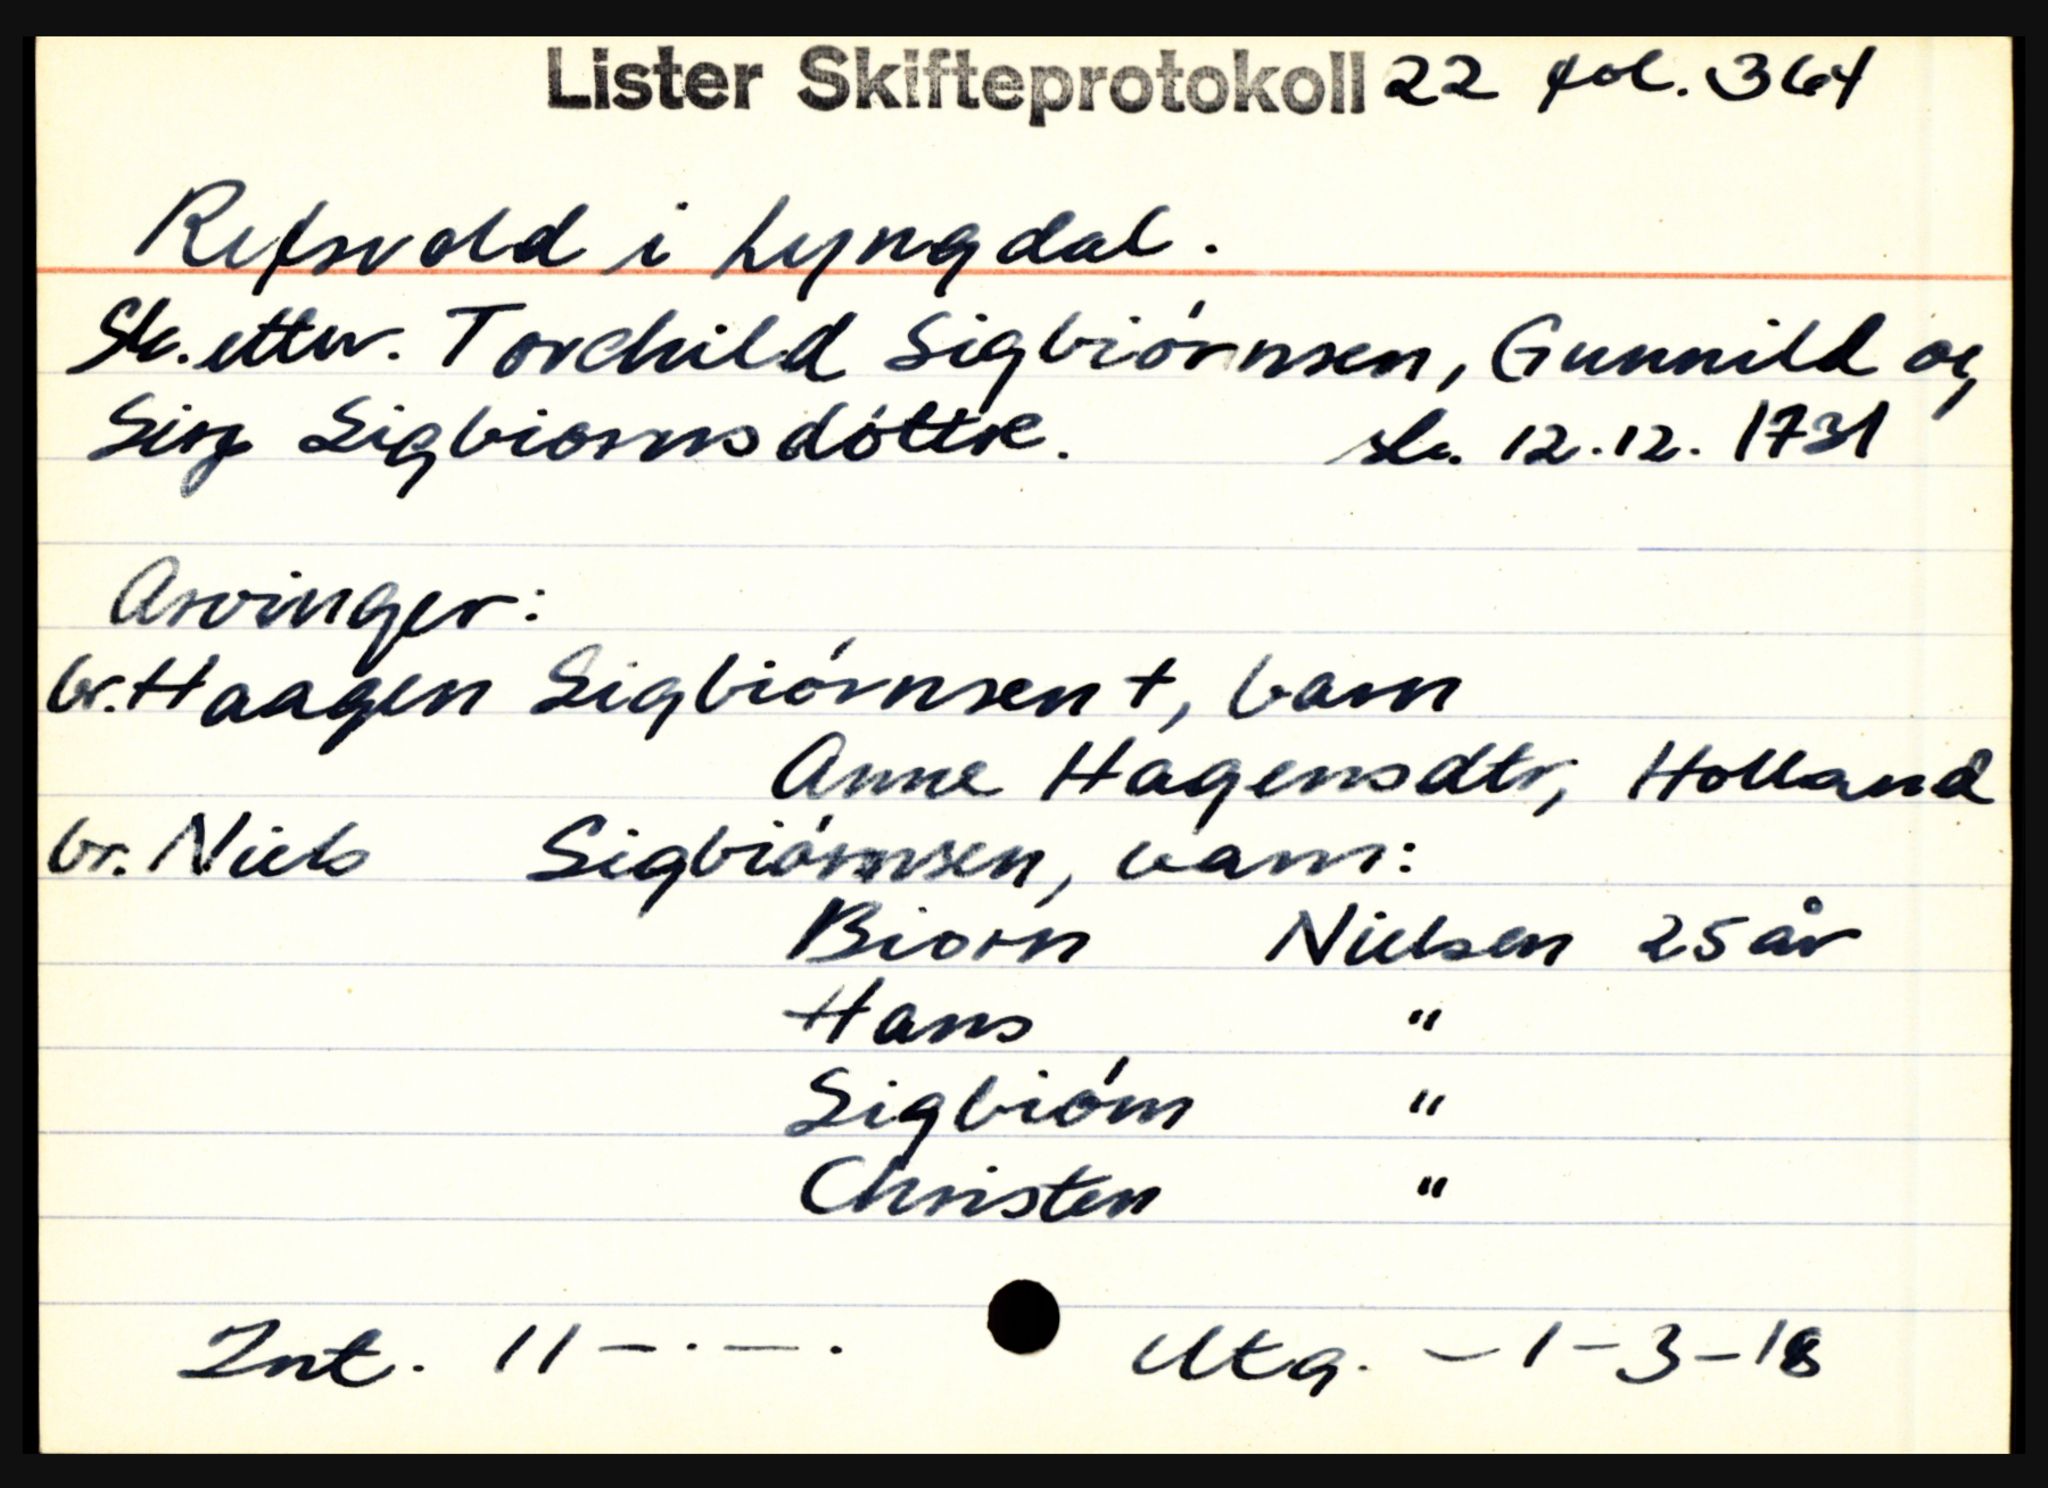 Lister Skifteprotokoll 22 fol. 364
Refsvold i Lyngdal.
Sk. etter. Torchild Sigbiórnsen, Gunnild og
Siri Sigbiornsdóttre. sk. 12.12. 1731
Arvinger:
br. Haagen Sigbiórnsen +, barn
Anne Hagensdtr, Holland
br. Niels Sigbiórnsen, barn:
Biorn Nielsen 25 år
Hans "
Sigbiórn "
Christen "
Int. 11 - . - . Utg. - 1 - 3 - 18